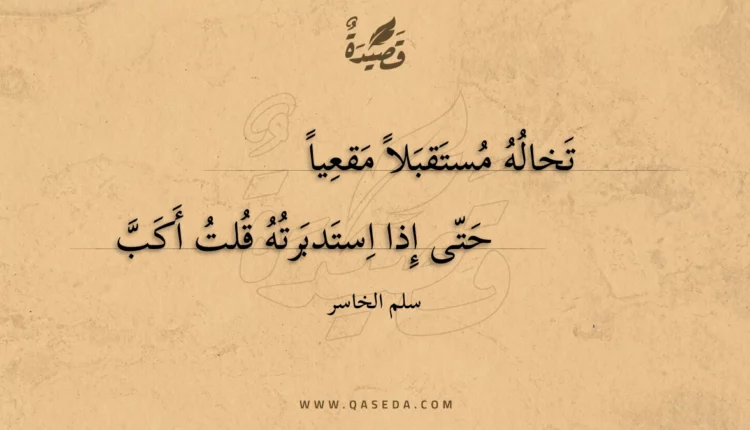 قَصِيدَةٌ
تَخالُهُ مُستَقبَلاً مَقعِياً
حَتّى إِذا اِستَدبَرتُهُ قُلتُ أَكَبَّ
سلم الخاسر
WWW.QASEDA.COM